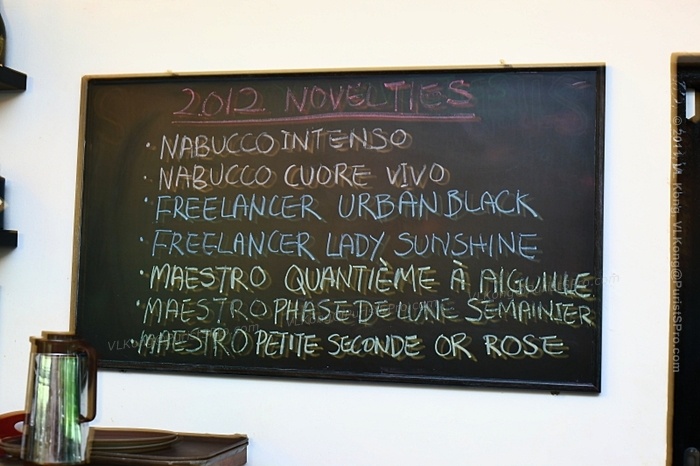 2012 NOVELTIES
• NABUCCO INTENSO
• NABUCCO CUORE VIVO
• FREELANCER URBAN BLACK
• FREELANCER LADY SUNSHINE
• MAESTRO QUANTIÈME À AIGUILLE
• MAESTRO PHASE DE LUNE SEMAINIER
MAESTRO PETITE SECONDE OR ROSE
© 2012 VLKong@PuristSPro.com